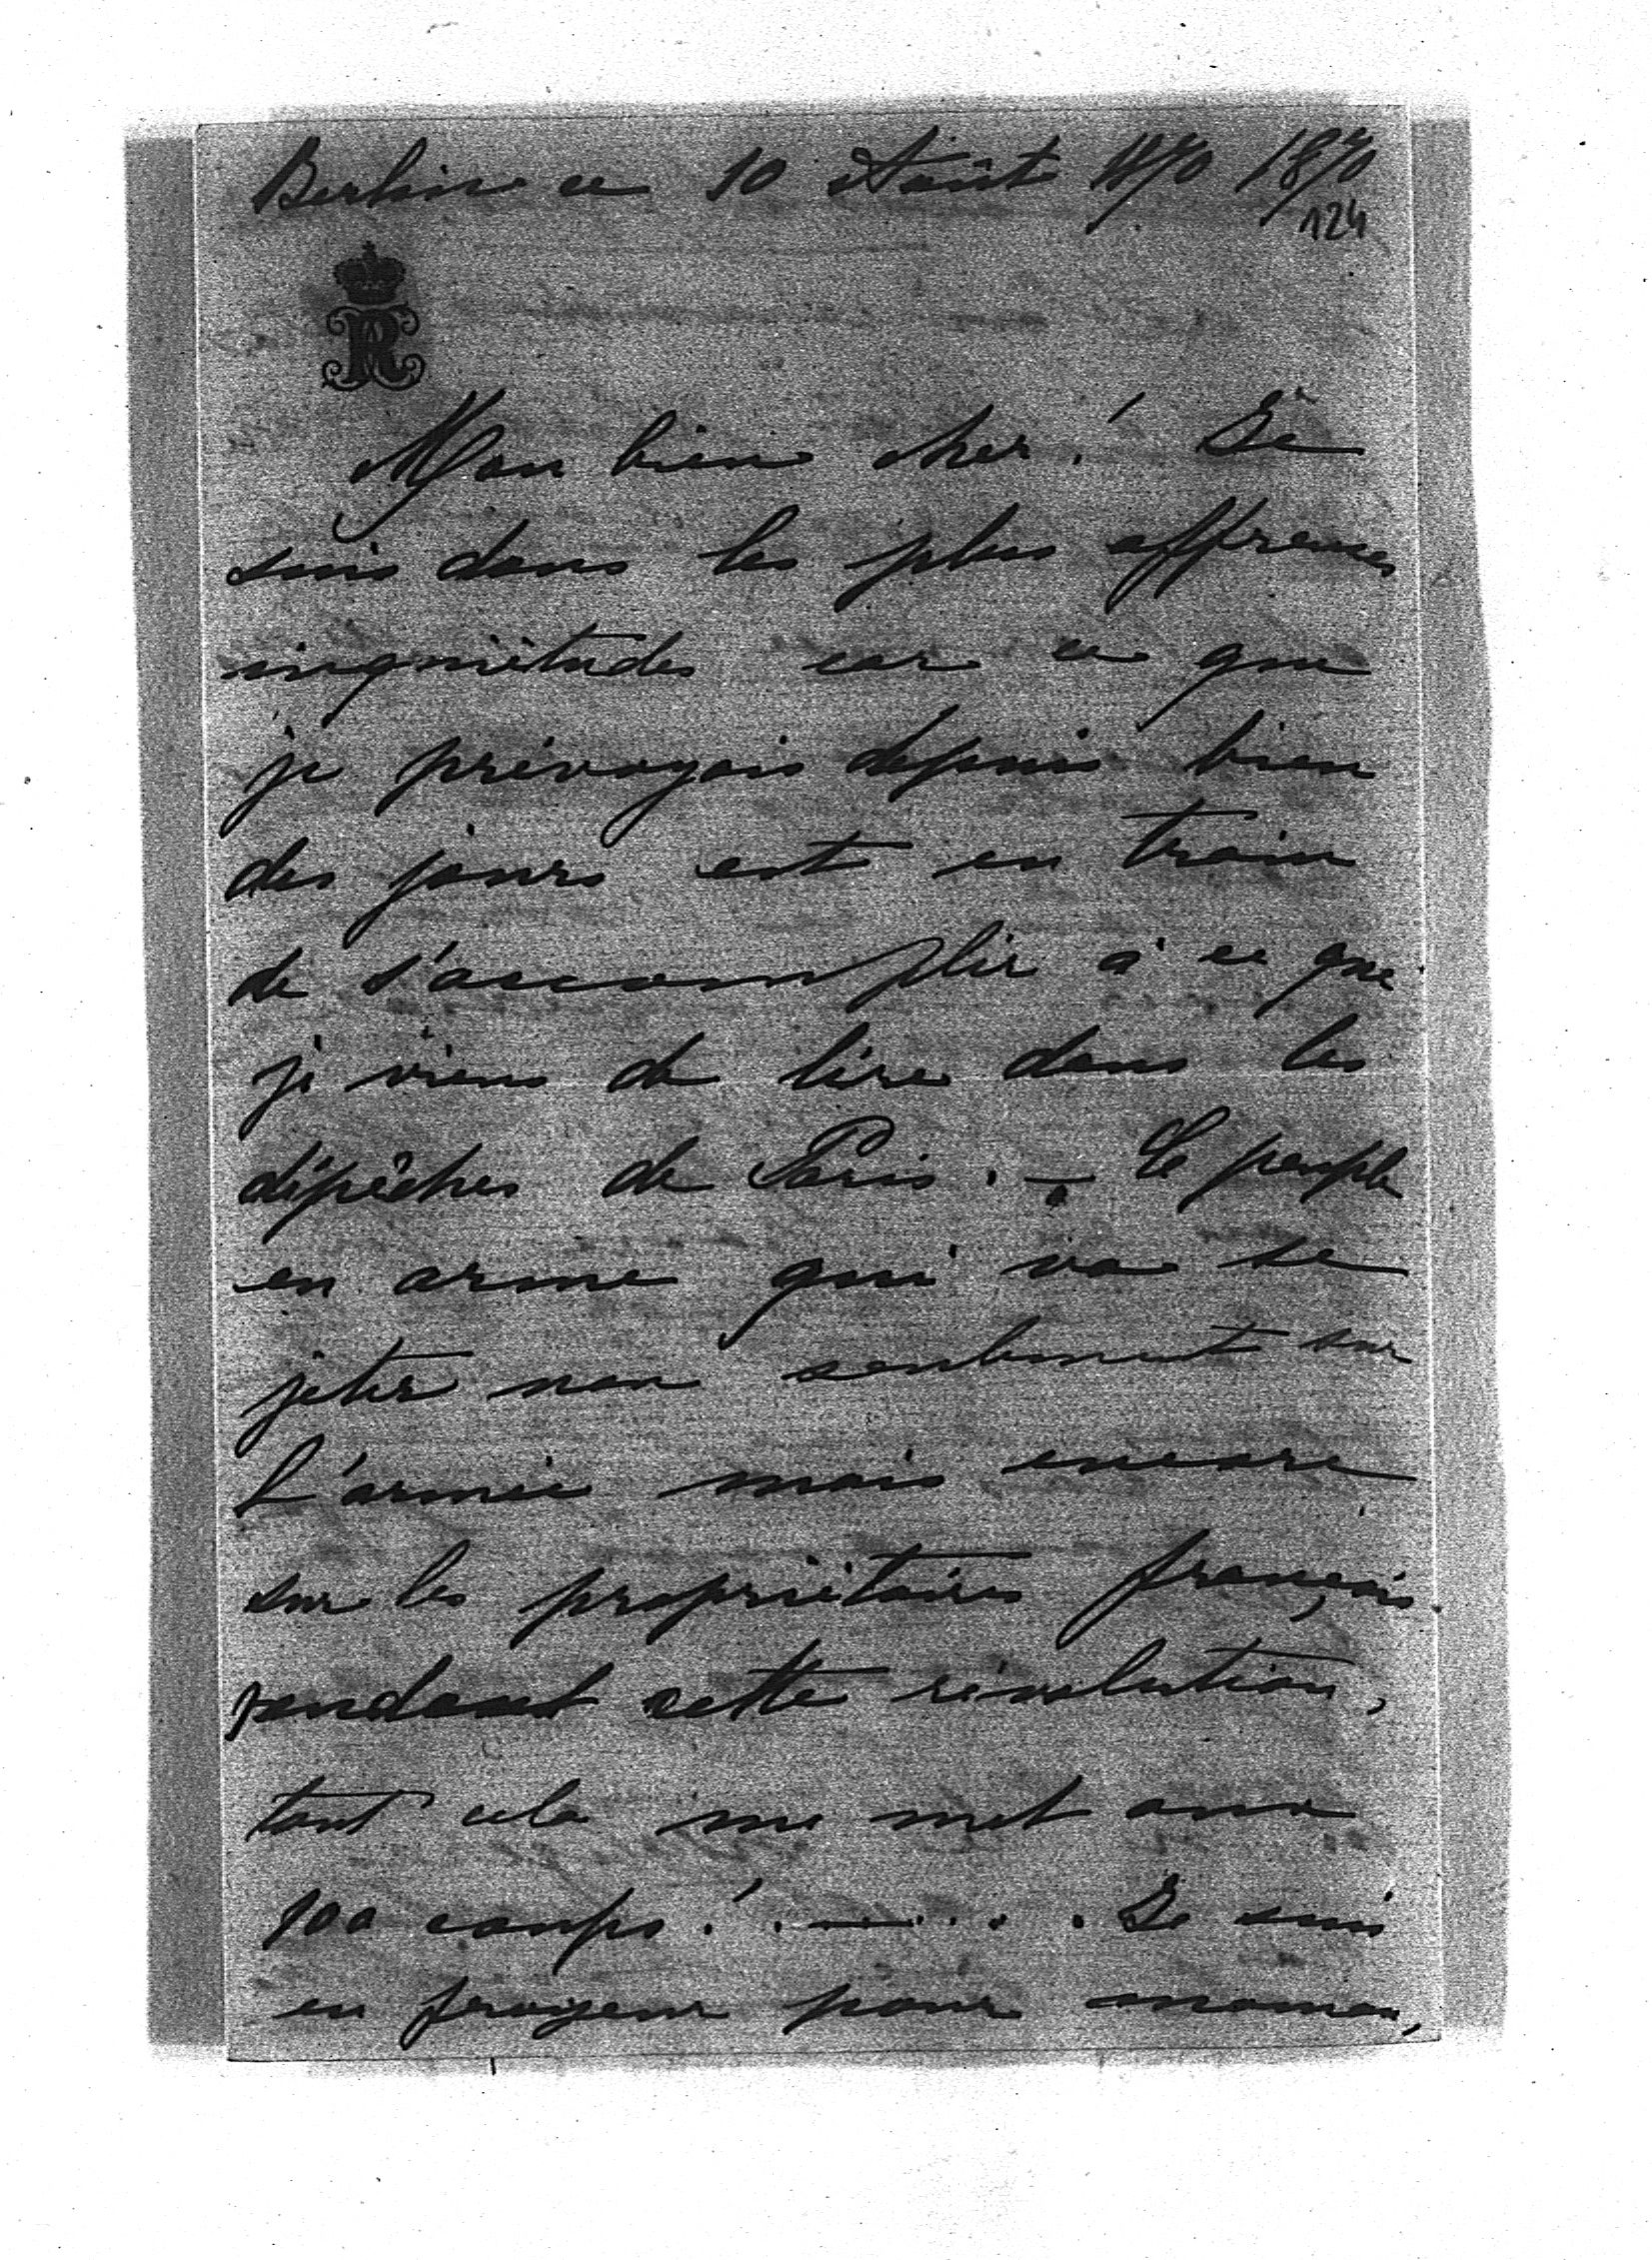 Berlin ce 10 Août 1870
124
R
Mon bien cher! Je
suis dans les plus affreuses
inquiètudes car ce que
je prévoyais depuis bien
des jours est en train
de s'accomplir à ce que
je viens de lire dans les
dépêches de Paris. – Le peuple
en arme qui va se
jeter non seulement sur
l'armée mais encore
sur les propriétaires français
pendant cette révolution,
tout cela me met aux
100 coups! . — . . . . Je suis
en frayeur pour maman,